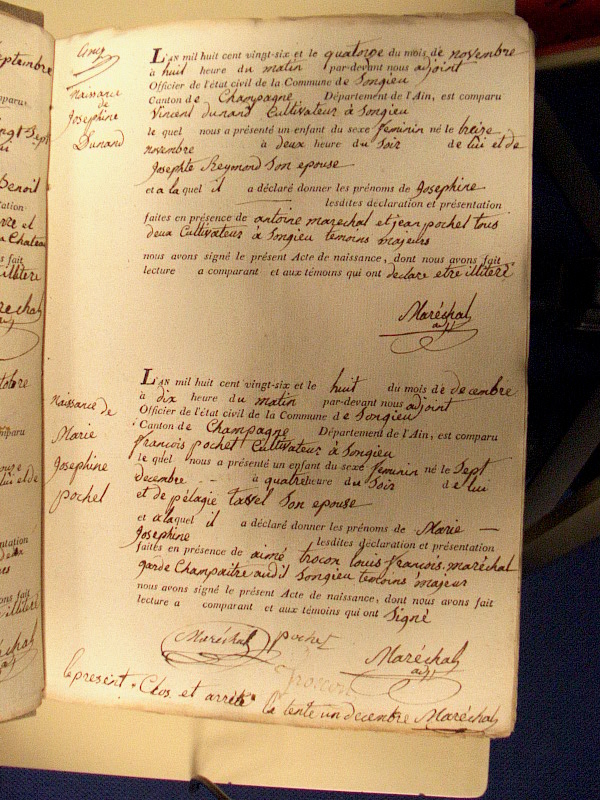 septembre
L'AN mil huit cent vingt-six et le quatorze du mois de novembre
à huit heure du matin par-devant nous adjoint
Officier de l'état civil de la Commune de Songieu
Canton de Champagne Département de l'Ain, est comparu
Vincent Dunand Cultivateur à Songieu
le quel nous a présenté un enfant du sexe feminin né le treize
novembre à deux heure du Soir de lui et de
Josephte Reymond Son epouse
et a la quel il a déclaré donner les prénoms de Josephine
lesdites déclaration et présentation
faites en présence de antoine marechal et jean pochet tous
deux Cultivateur à Songieu temoins majeurs
nous avons signé le présent Acte de naissance, dont nous avons fait
lecture a comparant et aux témoins qui ont declare etre illiteré
Maréchal
adj
naissance
de
Josephine
Dunand
L'AN mil huit cent vingt-six et le huit du mois de decembre
à dix heure du matin par-devant nous adjoint
Officier de l'état civil de la Commune de Songieu
Canton de Champagne Département de l'Ain, est comparu
francois pochet Cultivateur à Songieu
le quel nous a présenté un enfant du sexe feminin né le Sept
decembre à quatre heure du Soir de lui
et de pélagie tassel Son epouse
et a laquel il a déclaré donner les prénoms de Marie
Josephine lesdites déclaration et présentation
faites en présence de aimé trocon louis francois maréchal
garde Champaitre audit Songieu temoins majeur
nous avons signé le présent Acte de naissance, dont nous avons fait
lecture a comparant et aux témoins qui ont Signé
naissance de
Marie
Josephine
pochet
Maréchal pochet Maréchal
adj
Trocon
le present Clos et arrété la tente un decembre Maréchal